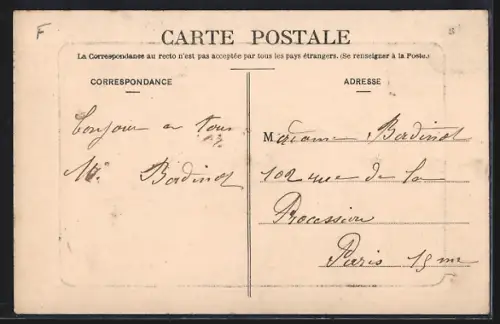 F
CARTE POSTALE
La Correspondance au recto n'est pas acceptée par tous les pays étrangers. (Se renseigner à la Poste.)
CORRESPONDANCE
ADRESSE
bonjour a tous
Bordinot
Madame Bordinot
102 rue de la
Procession
Paris 15 me